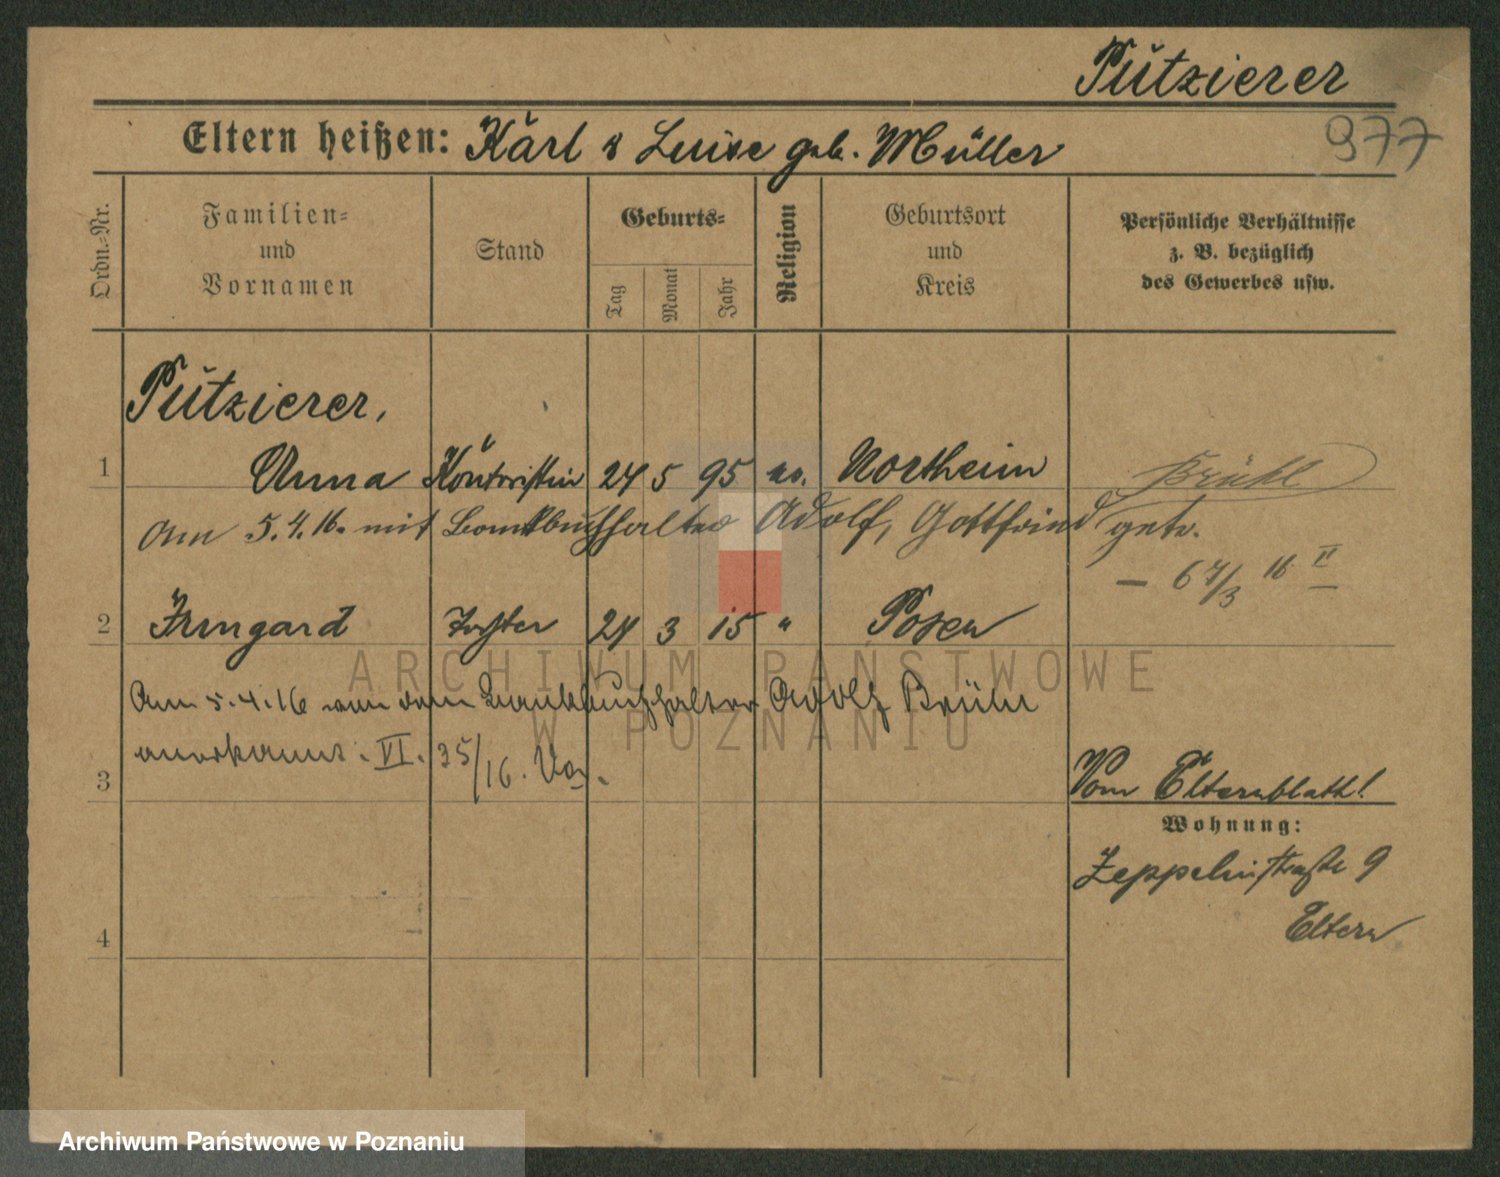 Pützierer
977
Eltern heißen: Karl & Luise geb. Müller
Ordn.-Nr.
Familien-
und
Vornamen
Stand
Geburts-
Tag
Monat
Jahr
Religion
Geburtsort
und
Kreis
Persönliche Verhältnisse
z. B. bezüglich
des Gewerbes usw.
Pützierer,
1 Anna Kontoristin 24 5 95 ev. Northeim Brühl
Am 5.4.16. mit Bankbuchhalter Adolf, Gottfried getr.
2 Irmgard Tochter 24 3 15 " Posen
ARCHIWUM PAŃSTWOWE
W POZNANIU
Am 5.4.16 von dem Bankbuchhalter Adolf Brühl
anerkannt. VI. 35/16.
3
Vom Elternblatt!
Wohnung:
Zeppelinstraße 9
Eltern
4
Archiwum Państwowe w Poznaniu